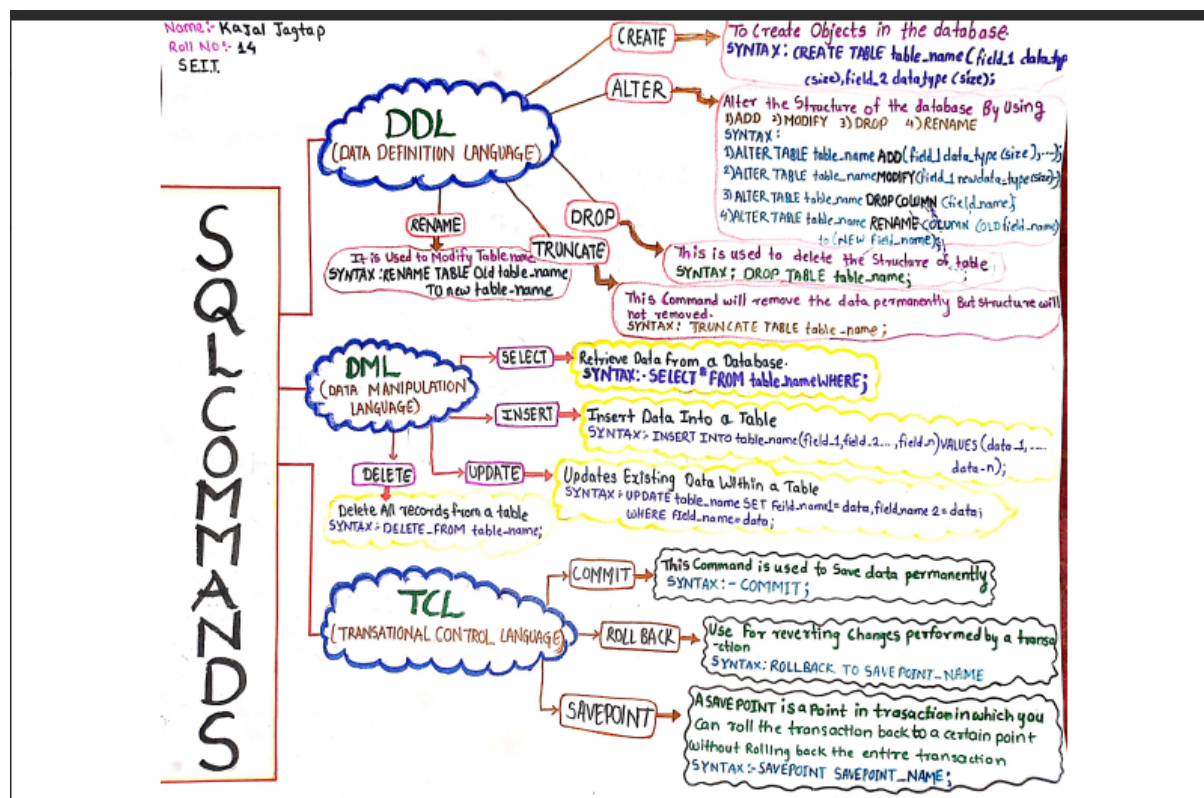 Name:- Kajal Jagtap
Roll No:- 14
SEIT.
SQL COMMANDS
DDL
(DATA DEFINITION LANGUAGE)
CREATE
To Create Objects in the database.
SYNTAX: CREATE TABLE table_name (field_1 data_typ
(size), field_2 data_type (size);
ALTER
Alter the Structure of the database By Using
1)ADD 2)MODIFY 3)DROP 4)RENAME
SYNTAX:
1)ALTER TABLE table_name ADD(field_1 data_type (size),...);
2)ALTER TABLE table_name MODIFY(field_1 newdata_type(size)-)
3)ALTER TABLE table_name DROP COLUMN (field_name);
4)ALTER TABLE table_name RENAME COLUMN (OLD field_name)
to (NEW field_name);
DROP
This is used to delete the Structure of table
SYNTAX: DROP TABLE table_name;
TRUNCATE
This Command will remove the data permanently But Structure will
not removed.
SYNTAX: TRUNCATE TABLE table_name;
RENAME
It is Used to Modify Table name
SYNTAX:RENAME TABLE Old table_name
TO new table-name
DML
(DATA MANIPULATION
LANGUAGE)
SELECT
Retrieve Data from a Database.
SYNTAX:- SELECT * FROM table_name WHERE;
INSERT
Insert Data Into a Table
SYNTAX:- INSERT INTO table_name(field_1,field_2...,field_n)VALUES (data_1,....
data-n);
UPDATE
Updates Existing Data Within a Table
SYNTAX:-UPDATE table_name SET Feild_name1=data,field_name 2=data;
WHERE Field_name=data;
DELETE
Delete All records from a table
SYNTAX:-DELETE_FROM table_name;
TCL
(TRANSATIONAL CONTROL LANGUAGE)
COMMIT
This Command is used to Save data permanently
SYNTAX:- COMMIT;
ROLL BACK
Use For reverting Changes performed by a transa
-ction
SYNTAX: ROLLBACK TO SAVEPOINT_NAME
SAVEPOINT
A SAVEPOINT is a Point in trasaction in which you
Can roll the transaction back to a certain point
without Rolling back the entire transaction
SYNTAX:-SAVEPOINT SAVEPOINT_NAME;